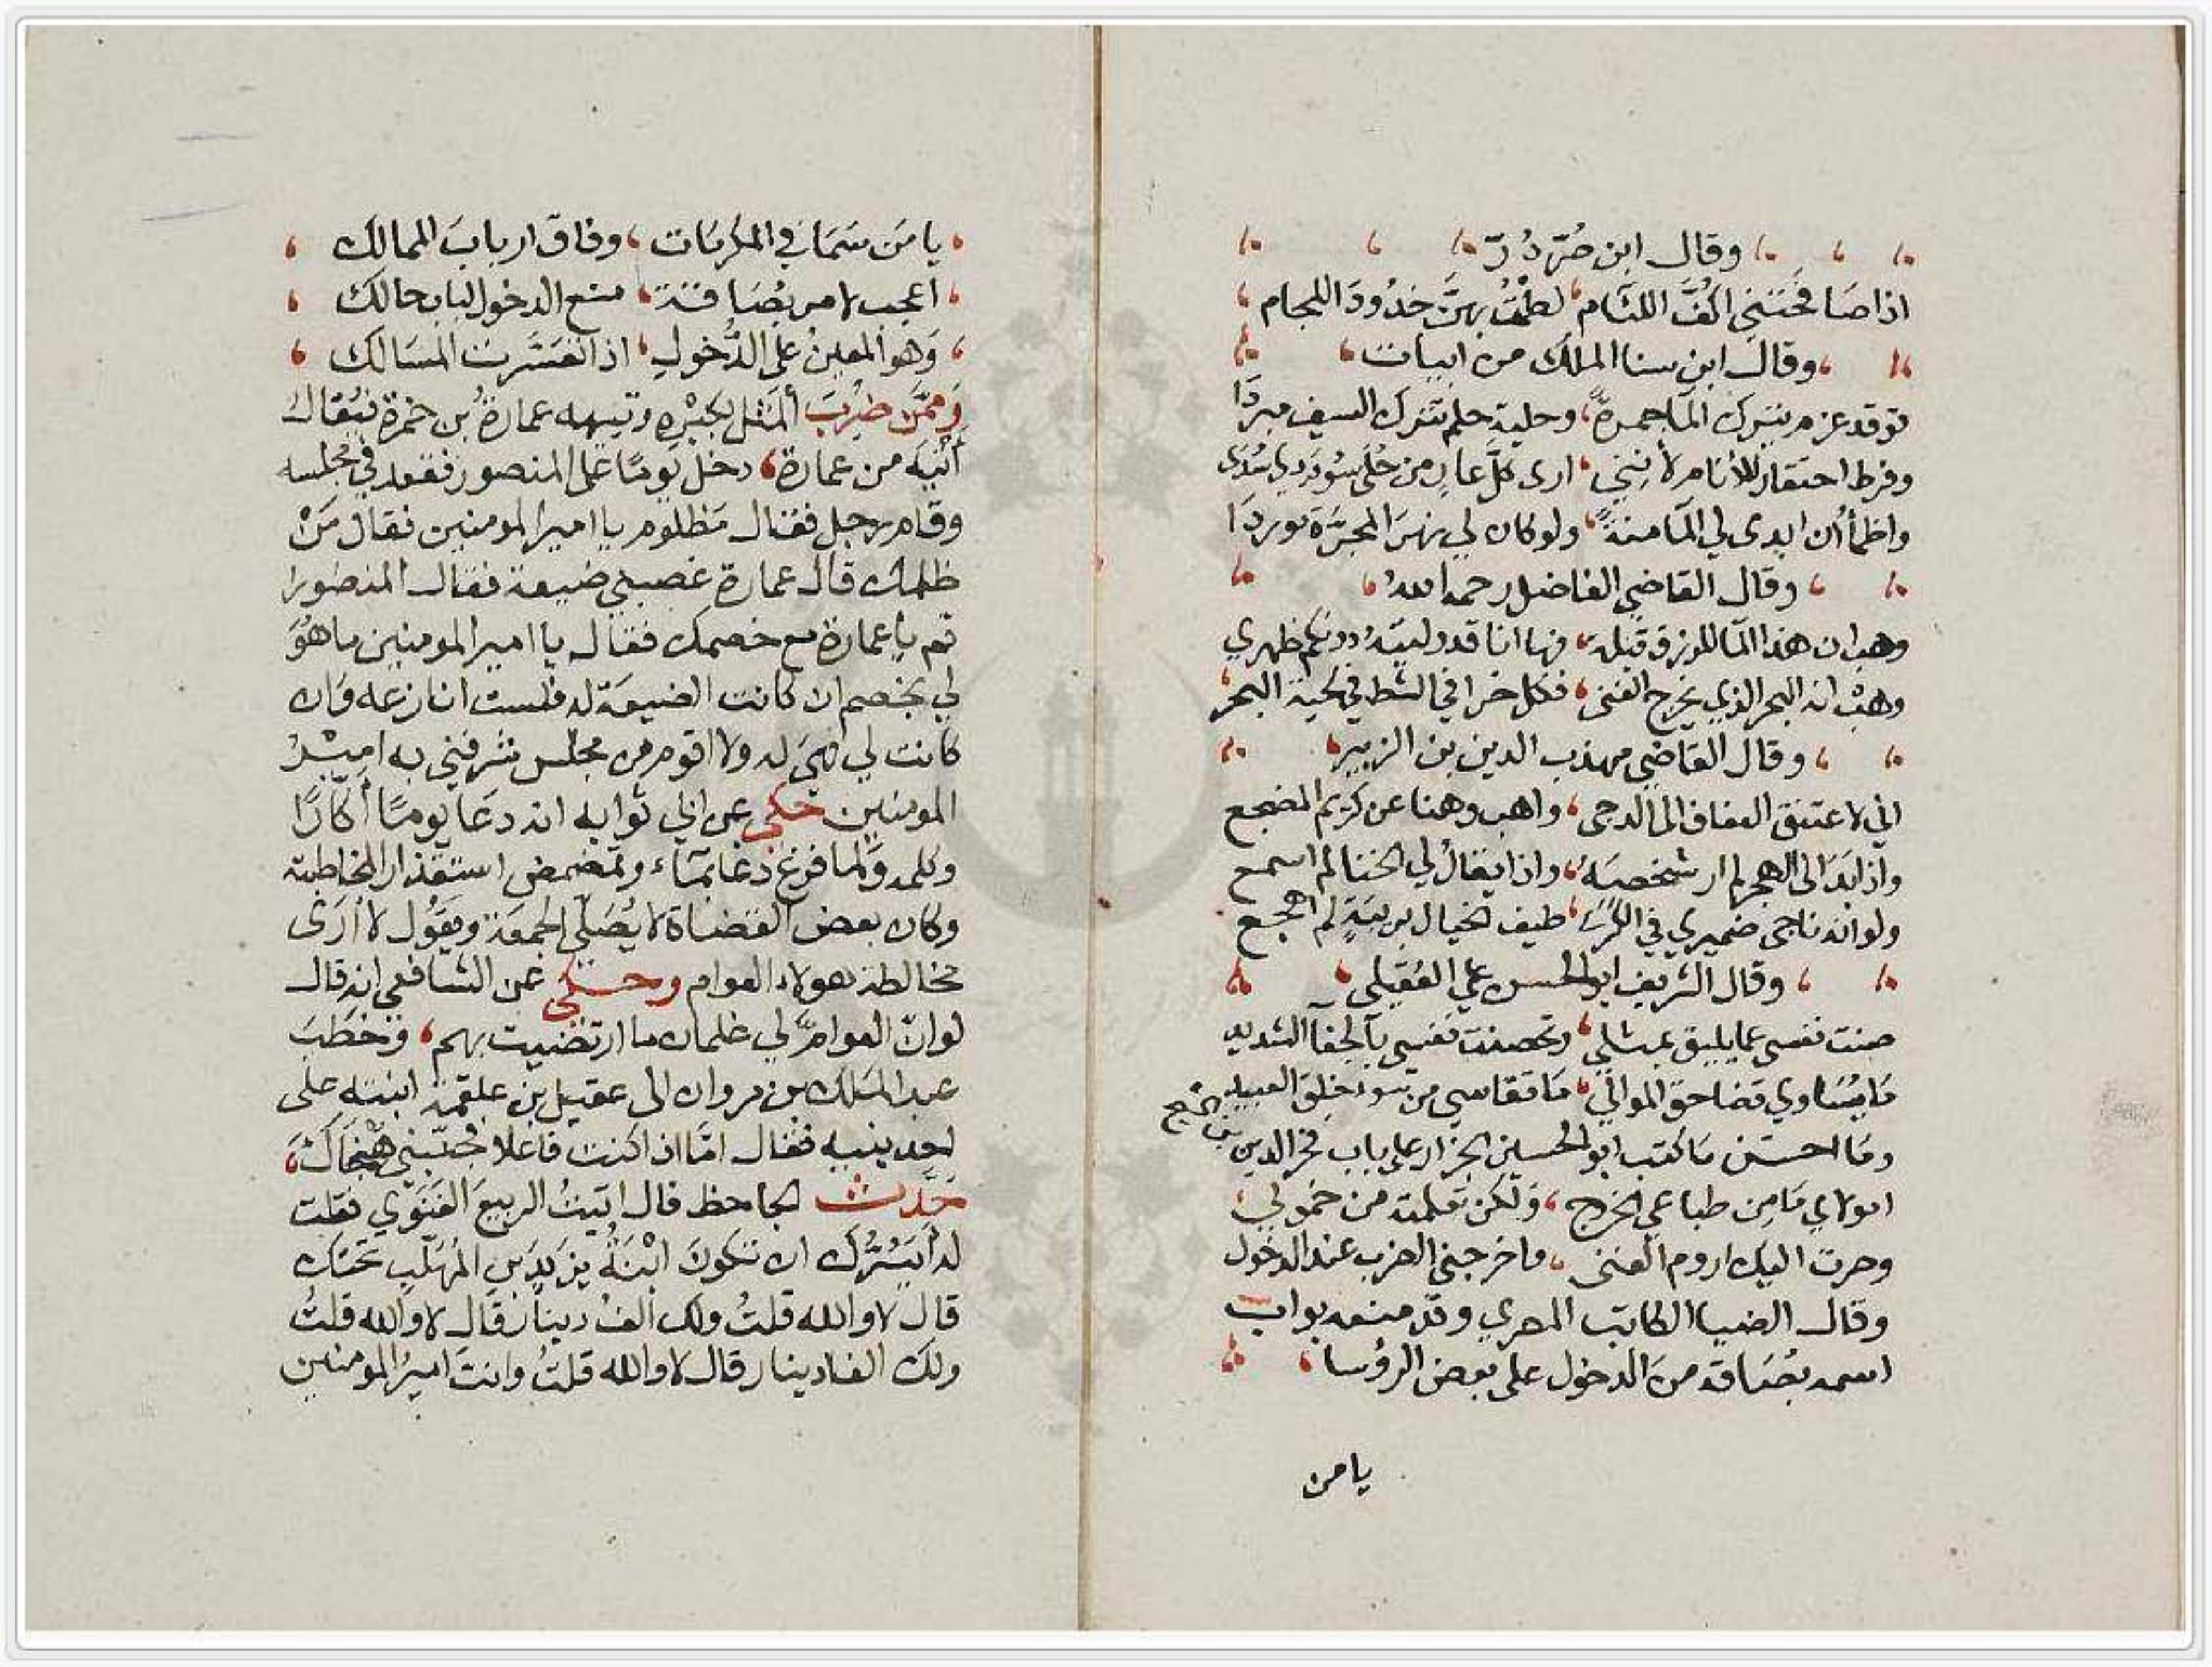 وقال ابن صُرّ دُرّ
اذا صَافحَتَنِي اكُفَّ اللئام لطمْتُ بهنَّ خدُودَ اللجام
وقال ابن سنا الملك من ابيات
توقد عزم يترك المآ جمرةً وحلية حلم تترك السيف مبردَا
وفرط احتقار للأنام لأنني ارى كلَّ عارٍ من حُلَى سُوددي سُدَى
واظمأُ ان ابدى لي المآ منةً ولو كان لي نهرَ المجَرّة موردَا
وقال القاضي الفاضل رحمه الله
وهب ان هذا المآ للرزق قبلة فها انا قد وليته دونكم ظهري
وهبْ انه البحر الذي يخرج الغنى فكل خرا في الشط في لحية البحر
وقال القاضي مهذب الدين بن الزبير
اني لاعتنق العفاف الدجى واهب وهنا عن كريم المضجع
واذا بَدَا لى الهجر لم ار شخصَهُ واذا يقالُ لي الخنا لم اسمع
ولو انه ناجى ضميري في الكرى طيف الخيال بريبَةٍ لم اهجع
وقال الشريف ابو الحسن علي العُقَيلي
صنت نفسي عما يليق بمثلي وتحصنت نفسي بآلجفآ الشديد
مَا يُسَاوي قضا حق الموالي مَا تقاسي من سوء خلق العبيد
ومَا احسَن مَا كتب ابو الحسين الجزار على باب فخر الدين بن الشيخ
امولاي مَا مِن طباعي الخروج وَلكن تعلمته من خمولي
وصرت اليك اروم الغنى فاخرجني الضرب عند الدخول
وقال الضيا الكاتب المصري وقد منعه بواب
اسمه بصَاقه من الدخول على بعض الرؤسا
يا من
يا مَن سَمَا في المكرمَات وفاق اربابَ الممالك
اعجب لامر بصَاقة منع الدخول لباب حالك
وَهو المعينُ على الدُّخولِ اذا تعَسَّرت المسَالك
وَممَّن ضُرِبَ المَثل بكبْرِه وتيهه عمارةُ بن حمزة فيُقالُ
أَتْيَه من عمارة دخل يَومًا على المنصور فقعد في مجلسه
وقام رجل فقال مَظلوم يا امير المومنين فقال مَنْ
ظلمك قال عمارة غصبني ضيعة فقال المنصور
قم يا عمارة مع خصمك فقال يا امير المومنين ما هُوَ
لي بخصم ان كانت الضيعَة له فلست انازعه وَان
كانت لي فهيَ له ولا اقوم من مجلس شرفني به اميْرُ
المومنين حكي عن ابي ثوابه انه دعَا يومًا أكّارًا
وكلمه وَلما فرغ دعَا بمَاء وتمضمض استقذارا لمخاطبته
وكان بعض القضاة لا يُصَلّي الجمعَة ويقوُل لا ارَى
مخالطة هولاء العوام وحكي عن الشافعي انه قال
لو انّ العوامَّ لي غلمان ما ارتضيت بهم وَخطَبَ
عبد الملك بن مروان الى عقيل بن علقمة ابنته على
احد بنيه فقال امَّا اذا كنت فاعلا فجنّبني هُجَنَاكَ
حَدّث الجاحظ قال اتيتُ الربيعَ الغَنَوي فقلت
له أيَسُرُّك ان تكونَ ابْنَةُ يزيدَ بن المُهَلّبِ تحتك
قال لا والله قلتُ ولك الفُ دينار قال لا والله قلتُ
ولك الفا دينار قال لا والله قلتُ وانتَ اميرُ المومنين